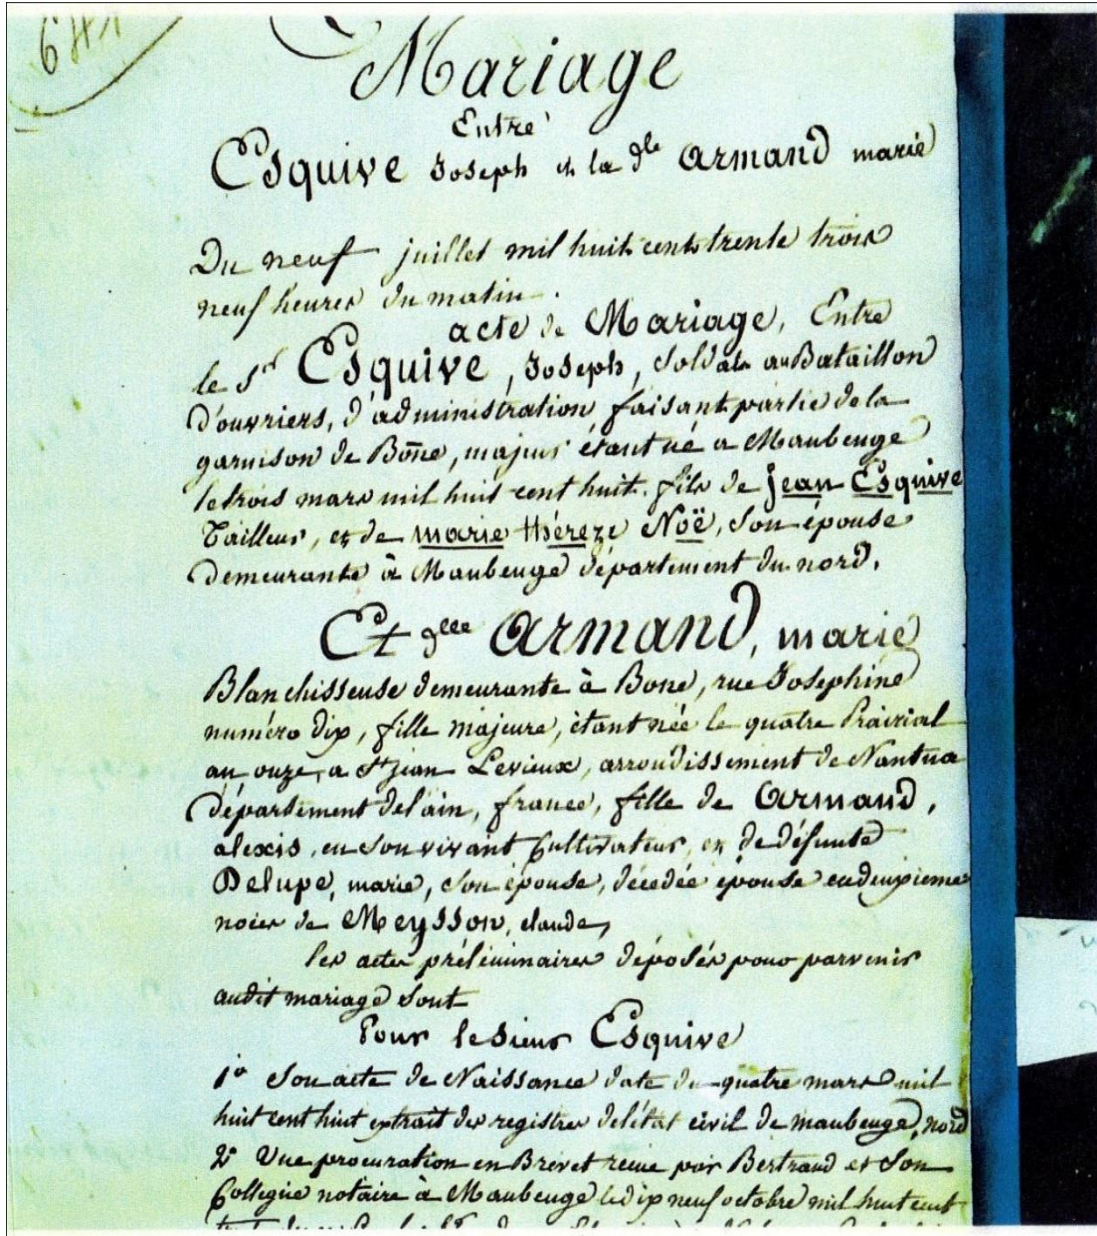 Mariage
Entre
Esquive Joseph et la dlle armand marie
Du neuf juillet mil huit cent trente trois
neuf heures du matin.
acte de Mariage, Entre
le Sr Esquive, Joseph, Soldat au Bataillon
D'ouvriers, d'administration faisant partie de la
garnison de Bône, majeur étant né a Maubeuge
le trois mars mil huit cent huit. fils de jean Esquive
Tailleur, et de marie théreze Noë, Son épouse
demeurante à Maubeuge département du nord.
Et dlle armand, marie
Blanchisseuse demeurante à Bone, rue Josephine
numéro dix, fille majeure, étant née le quatre Prairial
an onze, a St jean Levieux, arrondissement de Nantua
département de l'ain, france, fille de armand,
alexis, en Son vivant Cultivateur, et de défunte
Delupe, marie, Son épouse, décedée épouse en deuxieme
noces de Meysson, claude,
les actes préliminaires déposés pour parvenir
audit mariage Sont
Pour le sieur Esquive
1o Son acte de Naissance date du quatre mars mil
huit cent huit extrait des registres de l'état civil de maubeuge, nord
2o Une procuration en Brevet reçue par Bertrand et Son
Collegue notaire à Maubeuge le dix neuf octobre mil huit cent